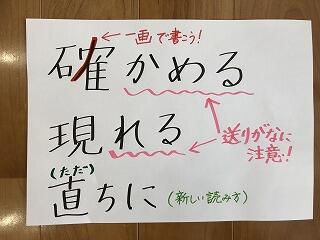 ← 一画で書こう!
確かめる
現れる
送りがなに
注意!
(ただ)
直ちに (新しい読み方)